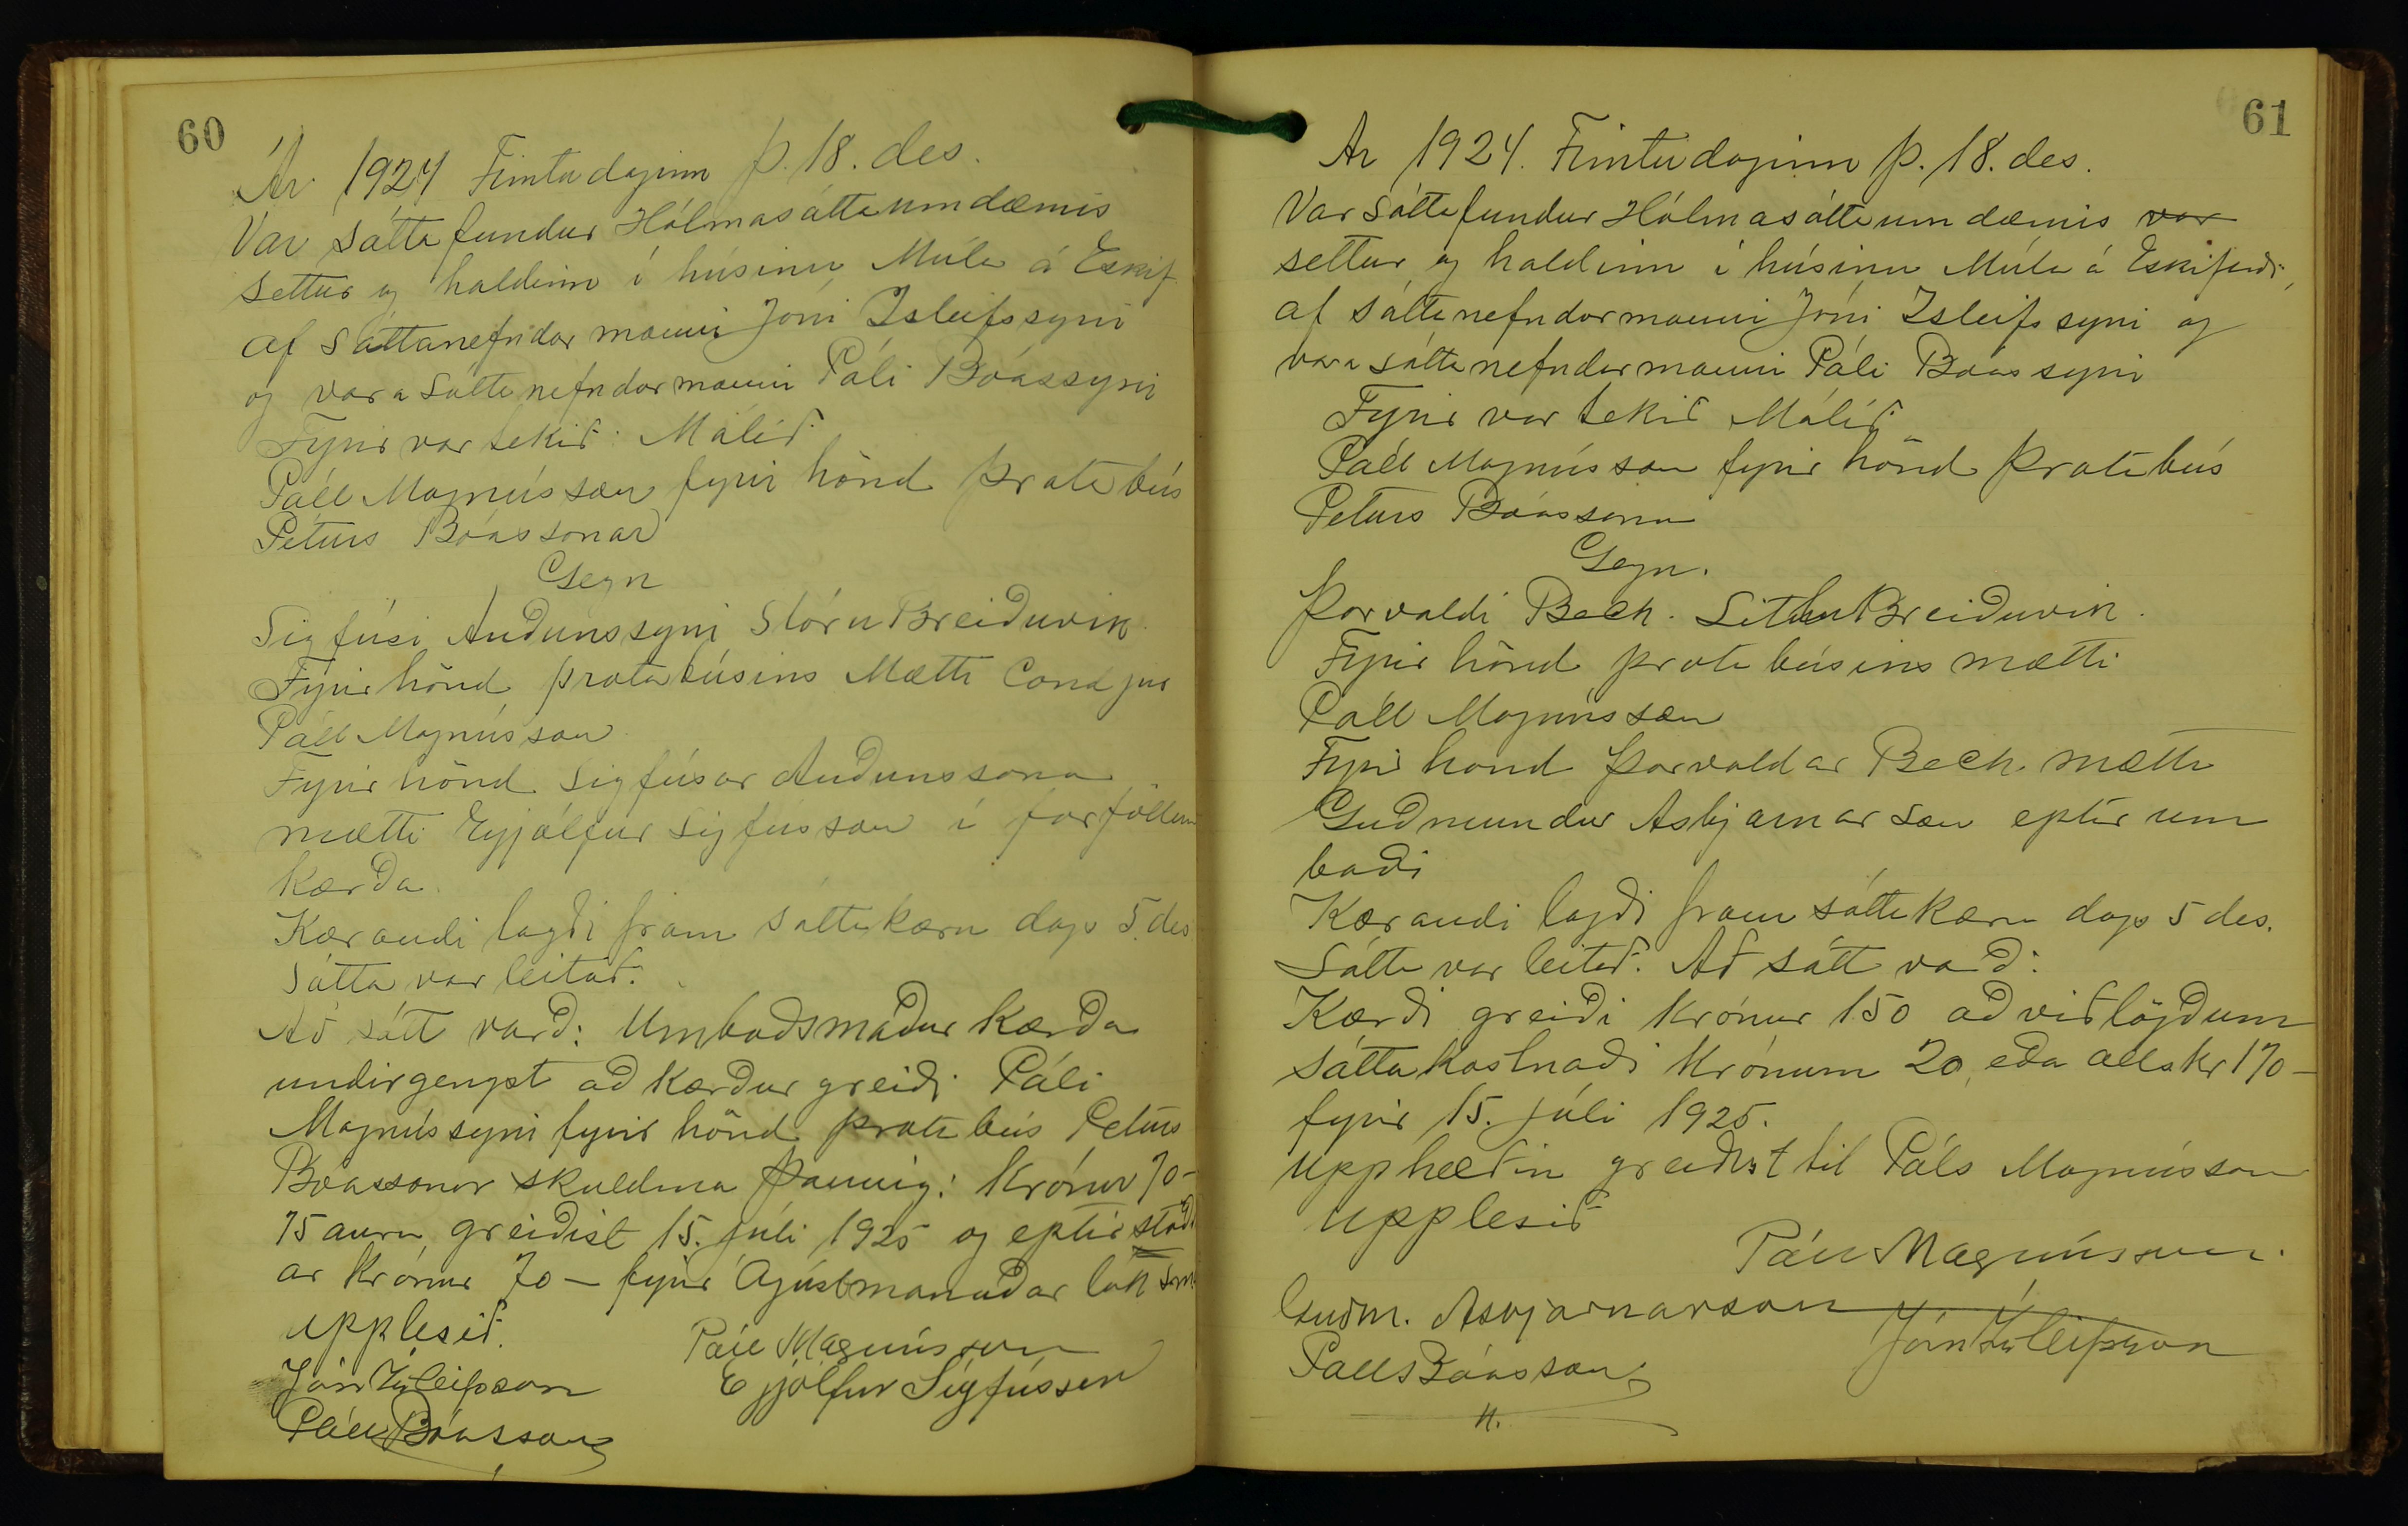 60
Ár 1924 Fimtudaginn þ. 18. des.
Var sáttafundur Hólmasáttaumdæmis
settur og haldinn í húsinu Múla á Eskif.
af sáttanefndarmanni Jóni Ísleifssyni
og vara sáttanefndarmanni Páli Bóassyni
Fyrir var tekið: Málið
Páll Magnússon fyrir hönd þrotabús
Péturs Bóassonar
Gegn
Sigfúsi Auðunssyni Stóru Breiðuvík.
Fyrir hönd þrotabúsins Mætti Cand jur
Páll Magnússon
Fyrir hönd Sigfúsar Auðunssona
mætti Eyjólfur Sigfússon í forföllum
kærða.
Kærandi lagði fram sáttakæru dags 5. des
Sátta var leitað.
Að sátt varð: Umboðsmaður kærða
undirgengst að kærður greiði Páli
Magnússyni fyrir hönd þrotabús Peturs
Bóassonar skuldina þannig: Krónur 70-
75 aura greiðist 15. júli 1925 og eptirstöð
ar Krónur 70 — fyrir Ágústmanaðar lok s.m.
upplesið.
Páll Magnússon
Jón Ísleifsson
Eyjólfur Sigfússon
Páll Bóasson
61
Ar 1924. Fimtudaginn þ. 18. des.
Var Sáttafundur Hólmasáttaumdæmis var
settur og haldinn í húsinu Múla á Eskifirði,
af sáttanefndarmanni Jóni Ísleifssyni og
vara sáttanefndarmanni Páli Bóassyni
Fyrir var tekið Málið
Páll Magnússon fyrir hönd þrotabús
Peturs Bóassonar
Gegn.
Þorvaldi Beck. Litlu Breiðuvík.
Fyrir hönd þrotabúsins mætti
Páll Magnússon
Fyrir hönd Þorvaldar Beck mætti
Guðmundur Asbjarnarson eptir um
boði
Kærandi lagði fram sáttakæru dags 5 des.
Sátta var leitað. Að sátt varð:
Kærði greiði Krónur 150 að viðlögðum
sáttakostnaði Krónum 20, eða alls kr 170—
fyrir 15. júli 1925.
Upphæðin greiðist til Páls Magnússon
Upplesið
Páll Magnússon.
Guðm. Asbjarnarson
Jón Ísleifsson
Páll Bóasson